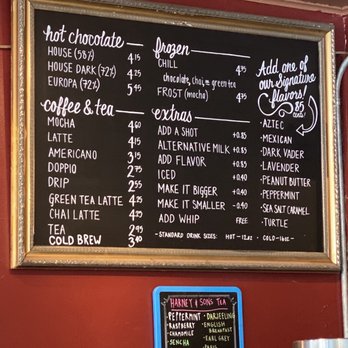 hot chocolate
HOUSE (58%) 4.15
HOUSE DARK (72%) 4.25
EUROPA (72%) 5.45
frozen
CHILL 4.75
chocolate, chai, green tea
FROST (mocha) 4.95
Add one of
our Signature
flavors!
.85
each!
coffee & tea
MOCHA 4.60
LATTE 4.15
AMERICANO 3.15
DOPPIO 2.75
DRIP 2.55
GREEN TEA LATTE 4.25
CHAI LATTE 4.20
TEA 2.45
COLD BREW 3.40
extras
ADD A SHOT +0.85
ALTERNATIVE MILK +0.85
ADD FLAVOR +0.85
ICED +0.40
MAKE IT BIGGER +0.40
MAKE IT SMALLER -0.40
ADD WHIP FREE
·STANDARD DRINK SIZES: HOT-12oz COLD-16oz
·AZTEC
·MEXICAN
·DARK VADER
·LAVENDER
·PEANUT BUTTER
·PEPPERMINT
·SEA SALT CARAMEL
·TURTLE
HARNEY & SONS TEA
·PEPPERMINT
·RASPBERRY
·CHAMOMILE
·SENCHA
·DARJEELING
·ENGLISH
BREAKFAST
·EARL GREY
·PARIS